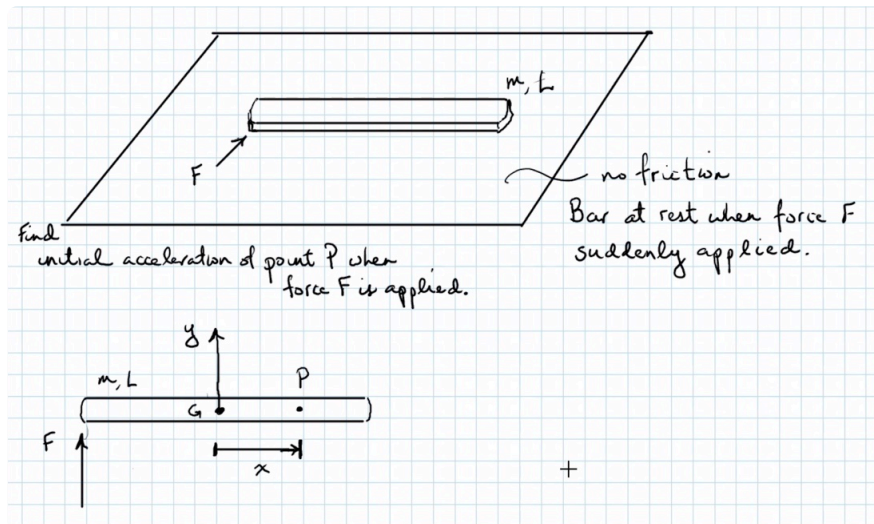 m, L
F
no friction
Bar at rest when force F
suddenly applied.
Find
initial acceleration of point P when
force F is applied.
y
m, L
P
G
F
x